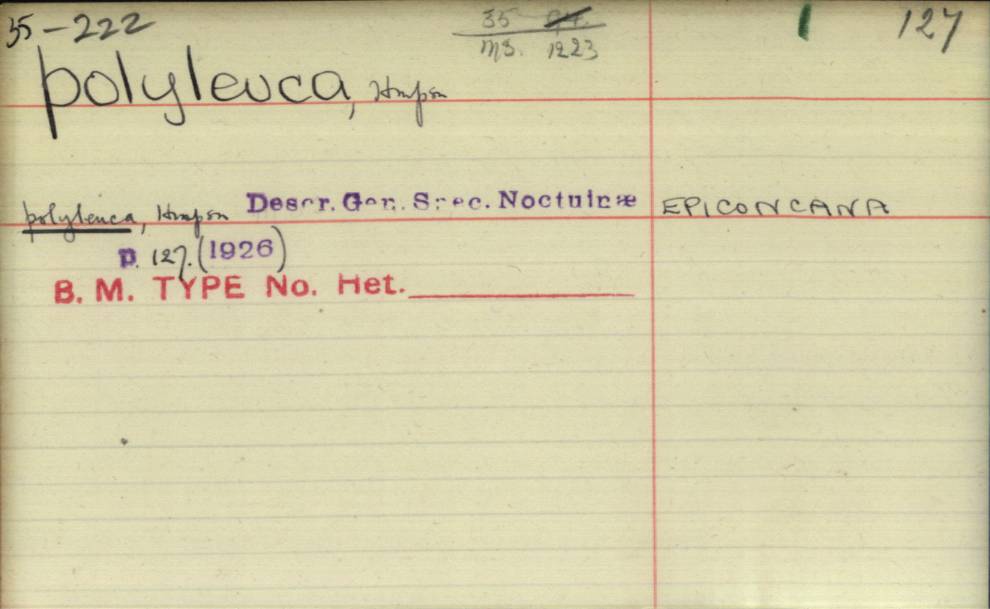 35-222
35
MS. 1223
1 127
polyleuca, Hmpsn
polyleuca, Hmpsn Descr. Gen. Spec. Noctuinæ EPICONCANA
p. 127. (1926)
B. M. TYPE No. Het.